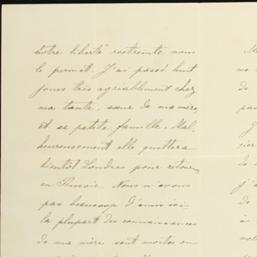 notre liberté restreinte nous
le permet. J'ai passé huit
jours très agréablement chez
ma tante, sœur de ma mère,
et sa petite famille. Mal-
heureusement elle quittera
bientôt Londres pour retourner
en Russie. Nous n'avons
pas beaucoup d'amis ici,
la plupart des connaissances
de ma mère sont mortes ou
M
ma
de
pas
cier
de
j'a
de
not